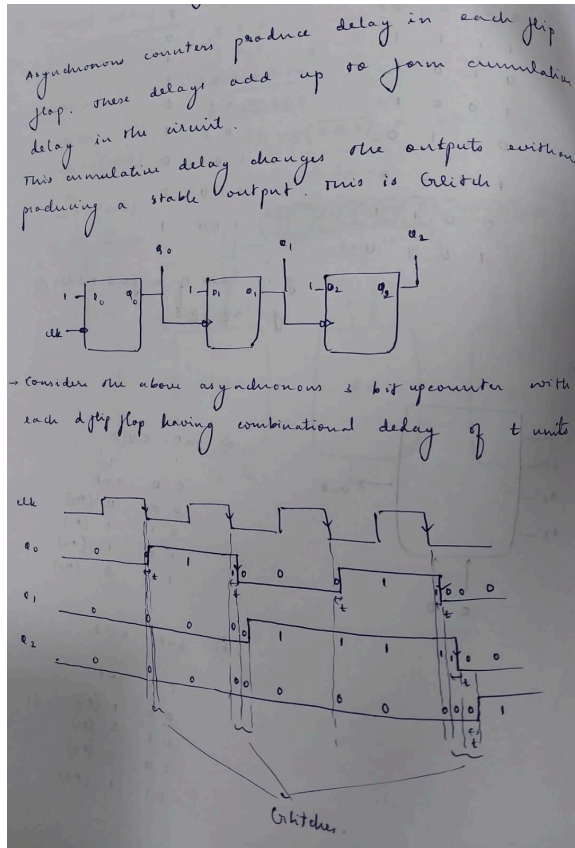 Asynchronous counters produce delay in each flip
flop. These delays add up to form cummulative
delay in the circuit.
This cummulative delay changes the outputs without
producing a stable output. This is Glitch
Q0 Q1 Q2
1 D0 Q0 1 D1 Q1 1 D2 Q2
clk
→ Consider the above asynchronous 3 bit upcounter with
each d flip flop having combinational delay of t units
clk
Q0 0 0 1 1 0 0 0 1 1 0 0 0
t t t t
Q1 0 0 0 0 0 1 1 1 1 1 0 0
t
Q2 0 0 0 0 0 0 0 0 0 0 0 1
t
Glitches.